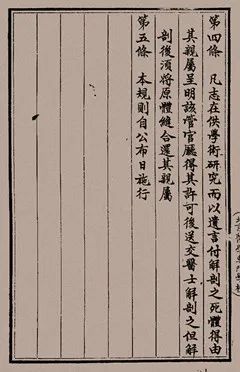 第四條　凡志在供學術研究而以遺言付解剖之死體得由
其親屬呈明該管官廳得其許可後送交醫士解剖之但解
剖後須將原體縫合還其親屬
第五條　本規則自公布日施行